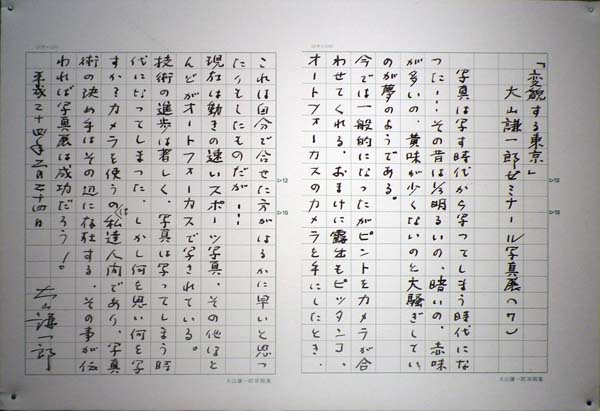 「変貌する東京」
大山謙一郎ゼミナール写真展(7)
写真は写す時代から写ってしまう時代にな
った!…その昔は⅓明るいの、暗いの、赤味
が多いの、黄味が少くないのと大騒ぎしてい
のが夢のようである。
今では一般的になったがピントをカメラが合
わせてくれる、おまけに露出もピッタンコ、
オートフォーカスのカメラを手にしたとき、
これは自分で合せた方がはるかに早いと思っ
たりもしたものだが…
現在は動きの速いスポーツ写真、その他ほと
んどがオートフォーカスで写されている。
技術の進歩は著しく、写真は写ってしまう時
代になってしまった、しかし何を思い何を写
すか?カメラを使うのは私達人間であり、写真
術の決め手はその辺に存在する、その事が伝
われば写真展は成功だろう!。
平成二十四年二月二十四日
大山謙一郎
▷12
▷10
▷12
▷10
大山謙一郎原稿箋
大山謙一郎原稿箋